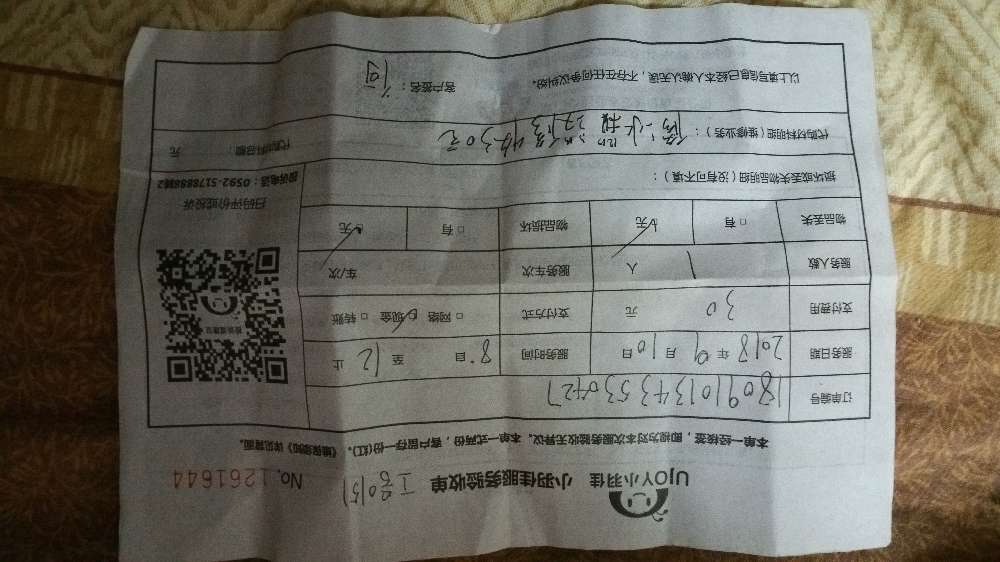 UJOY小羽佳 小羽佳服务验收单 No. 1261644
本单一经接签,即视为对本次服务验收无异议。本单一式两份,客户留存一份(红)。《维保须知》详见背面。
订单编号
服务日期 2018年9月10日 服务时间 8 自 至 12 止
支付费用 30 元 支付方式 □ 网络 □ 现金 □ 转账
服务人数 1 人 服务车次 车/次
物品丢失 □ 有 无 物品损坏 □ 有 无
损坏或丢失物品明细(没有可不填):
代购材料明细(维修业务): 收30元
代购材料总额: 元
以上填写信息已经本人确认无误,不存在任何争议纠纷。
客户签名:
扫码评价或投诉